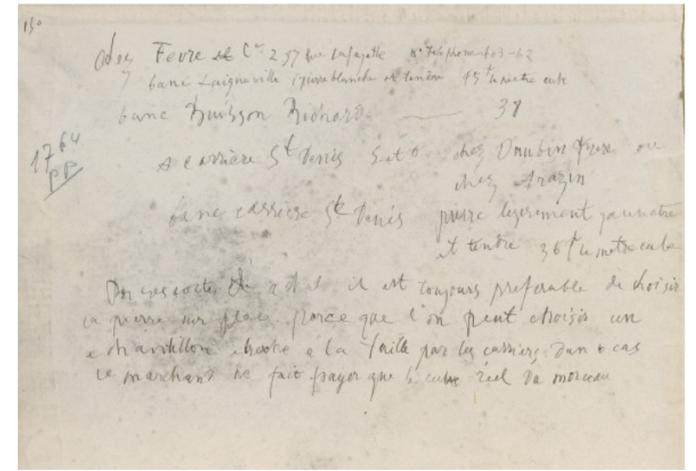 130
chez Fevre et Cie 257 rue Lafayette n° Telephone 403-62
banc Laigneville (pierre blanche et tendre 45f le metre cube
banc Buisson Richard — 38
1764
PP
carrière St Denis chez Daubin frere ou
chez Arazin
banc carriere St Denis pierre legerement jaunatre
et tendre 36f le metre cube
il est toujours preferable de choisir
la pierre sur place parce que l'on peut choisir un
echantillon ebauché à la taille par les carriers. Dans ce cas
le marchand ne fait payer que le cube réel du morceau